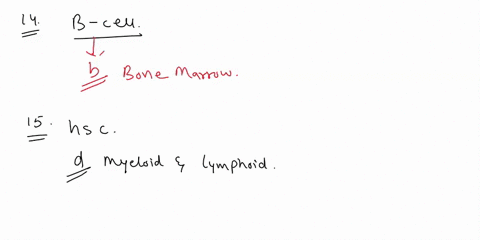 14. B-cell.
b Bone Marrow.
15. hsc.
d myeloid & lymphoid.